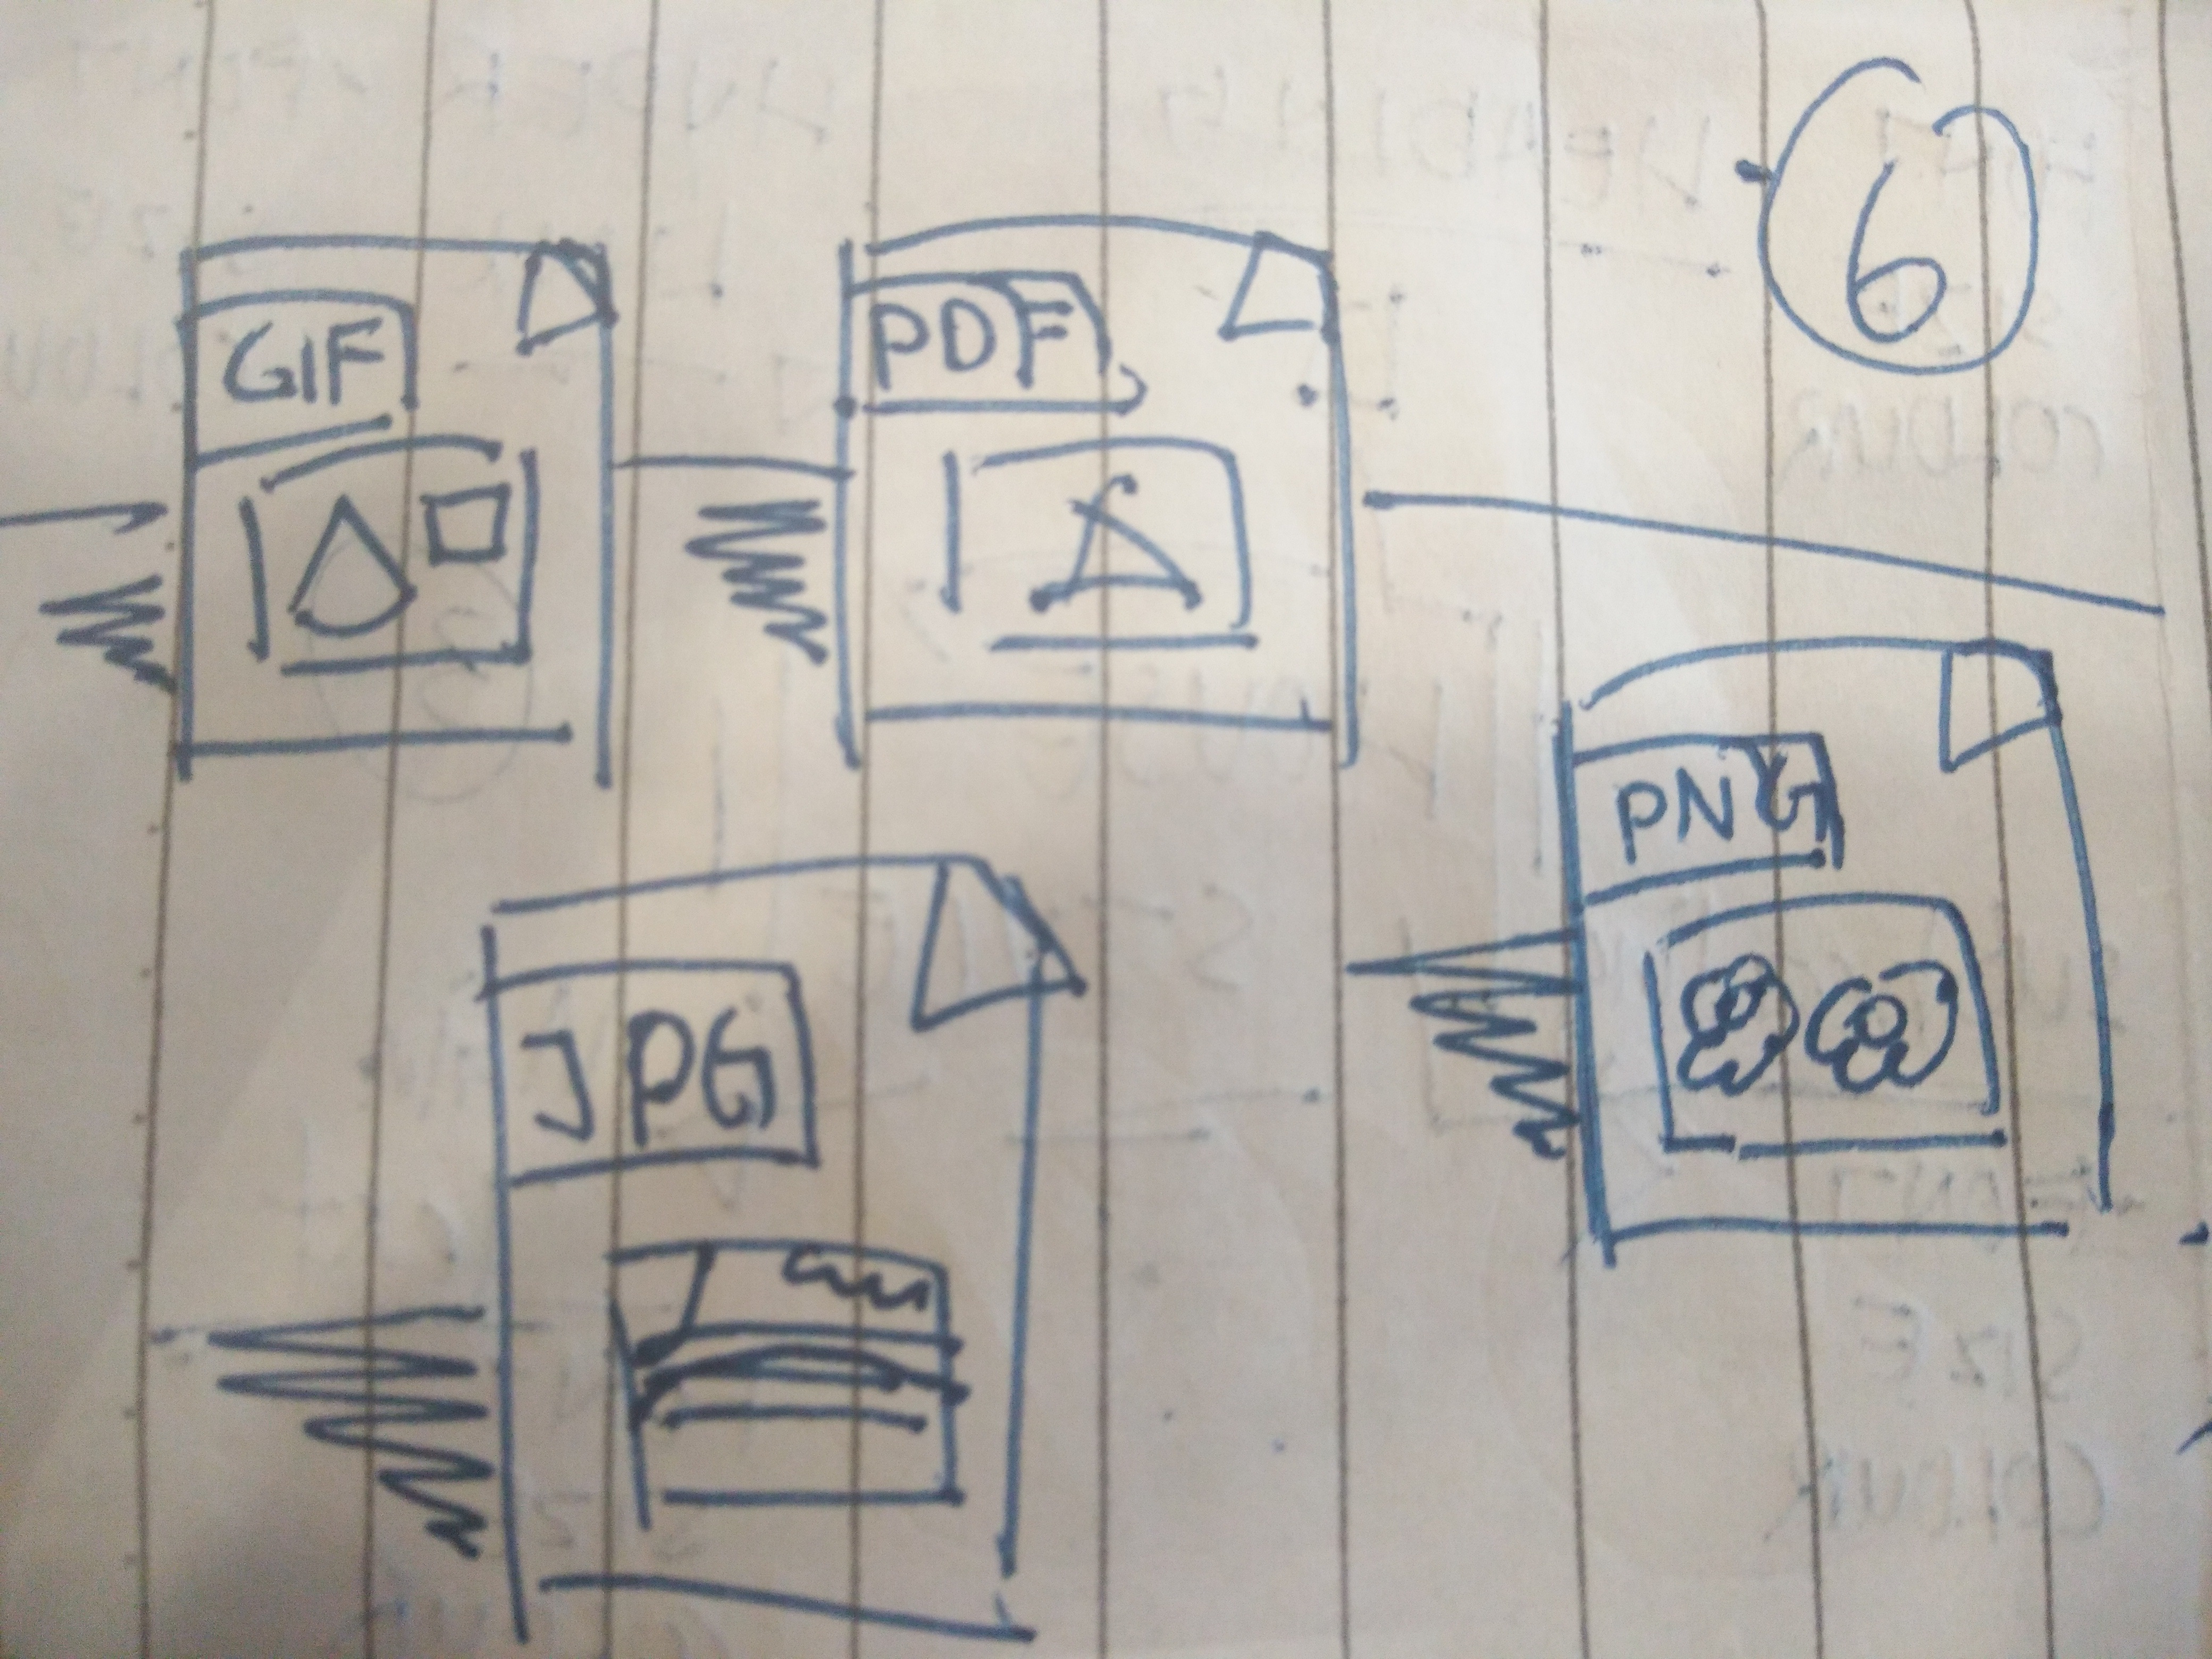 6
GIF
PDF
PNG
JPG